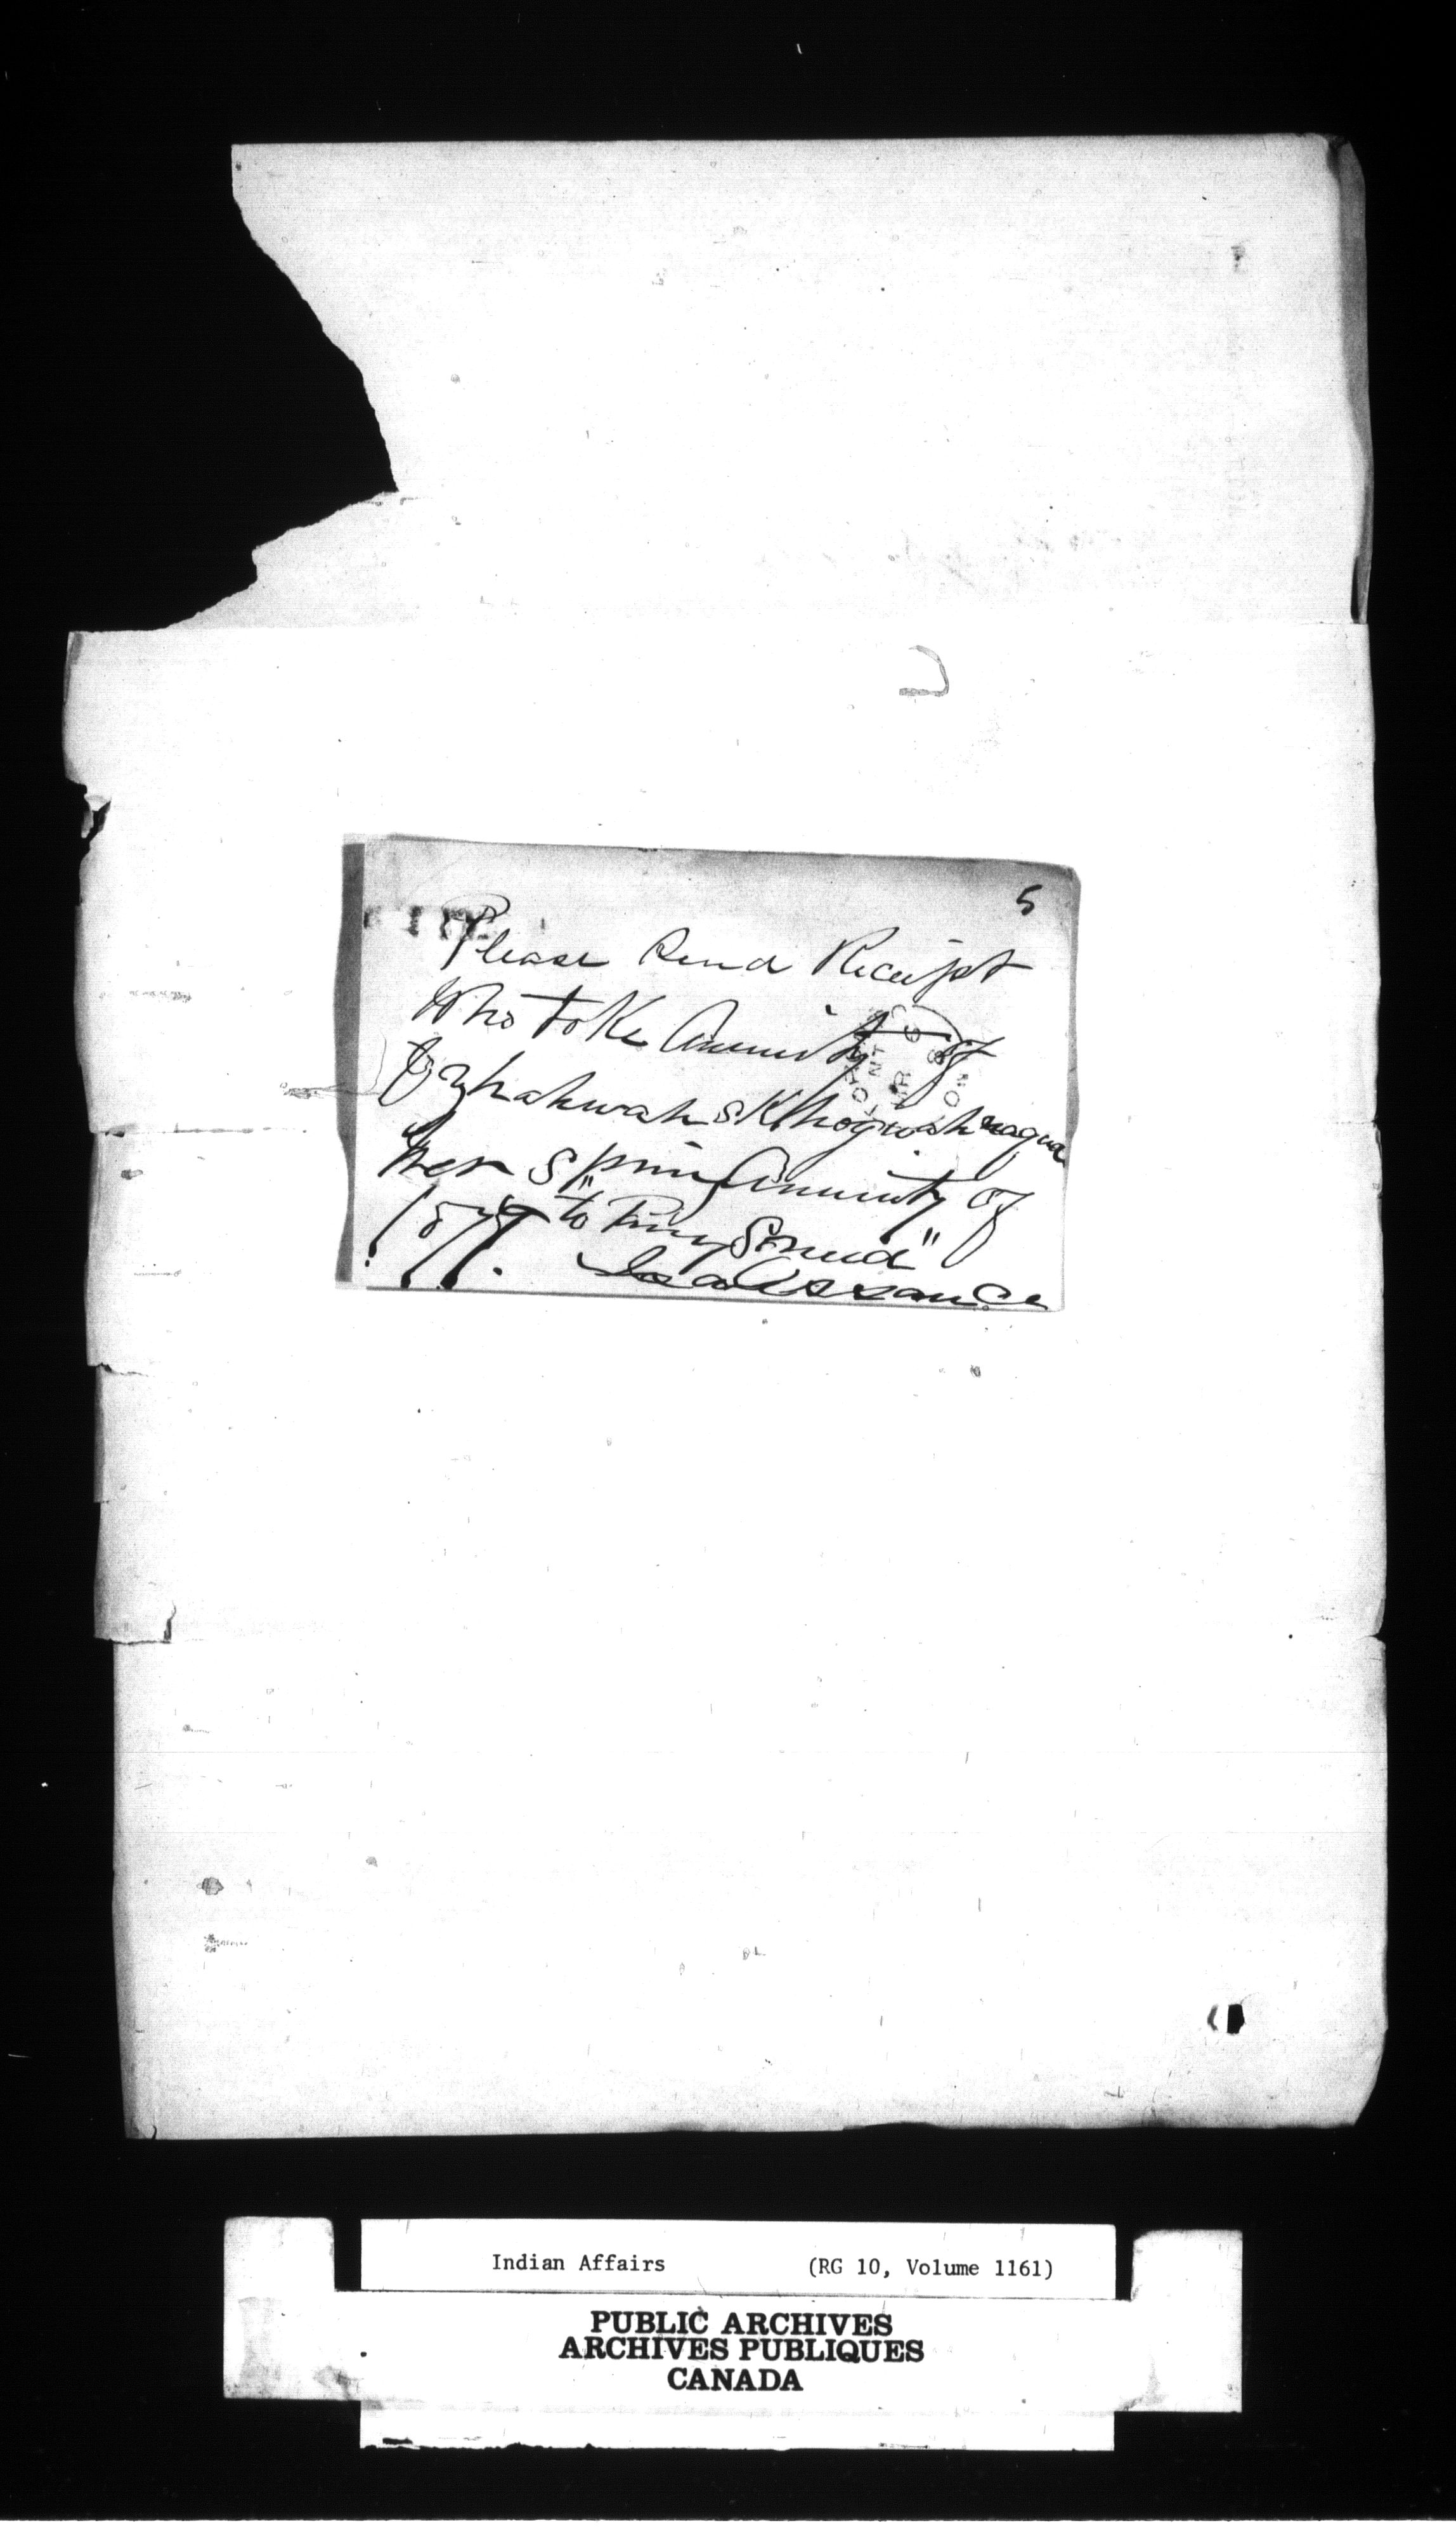 5
Please Send Receipt
Who toke Annuity of
her Spring Annuity of
1879 "to Priny Sound"
Assance
Indian Affairs (RG 10, Volume 1161)
PUBLIC ARCHIVES
ARCHIVES PUBLIQUES
CANADA